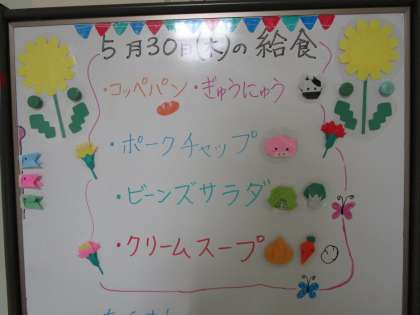 5月30日(木)の給食
・コッペパン・ぎゅうにゅう
・ポークチャップ
・ビーンズサラダ
・クリームスープ